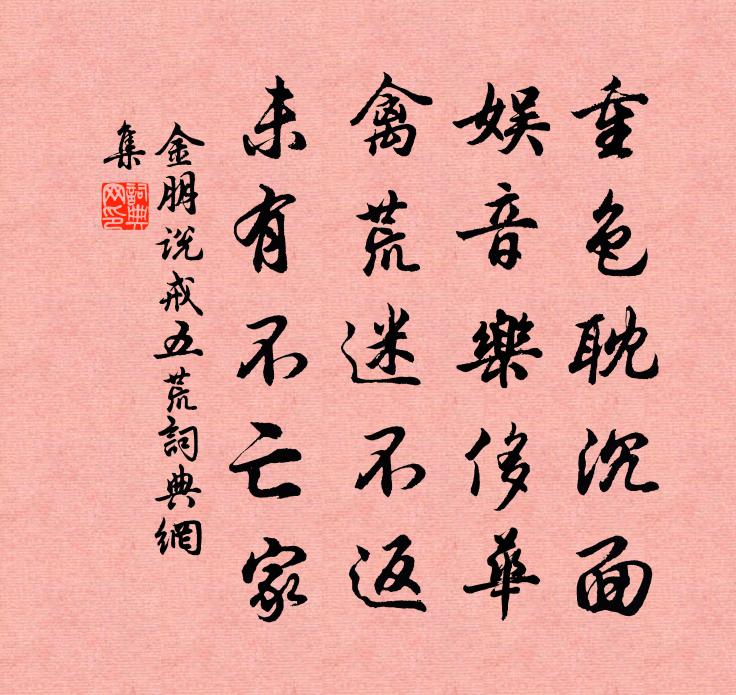 重色耽沉面
娱音樂侈華
禽荒迷不返
未有不亡家
金朋说戒五荒詞典網
集
詞典
网印